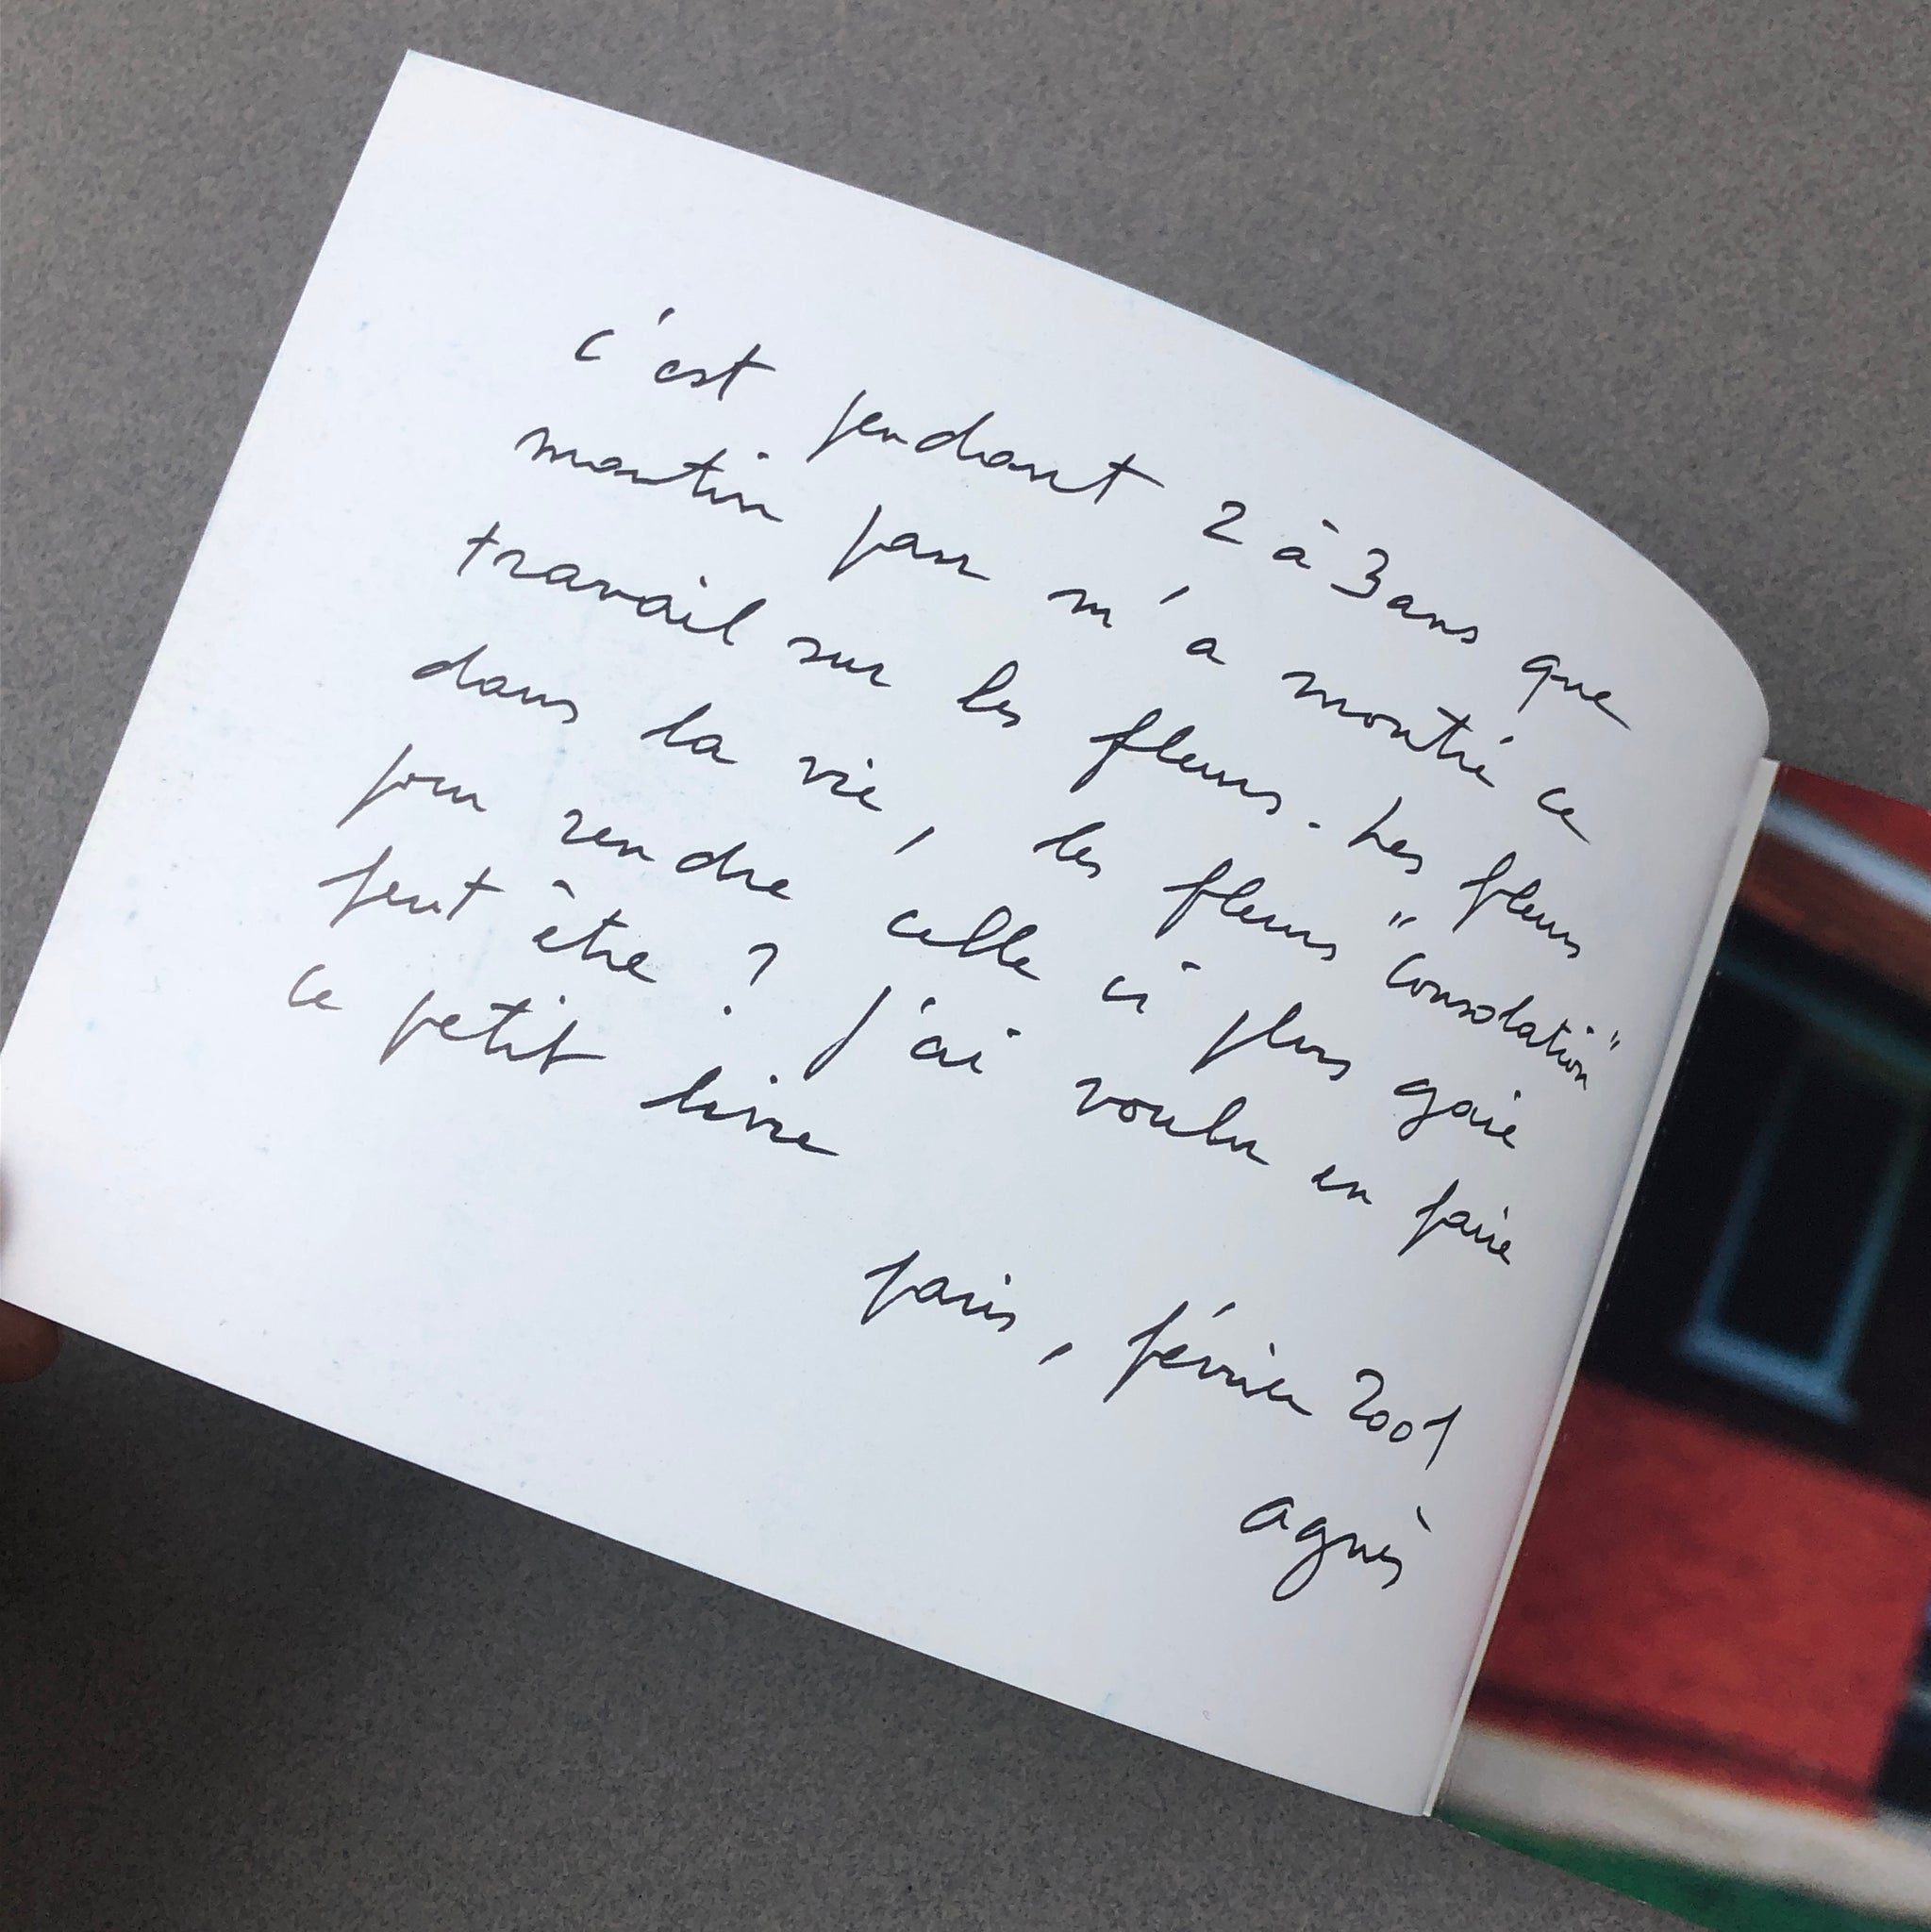 c'est pendant 2 à 3 ans que
martin parr m'a montré ce
travail sur les fleurs. Les fleurs
dans la vie, les fleurs "consolation"
pour rendre celle ci plus gaie
peut être ? J'ai voulu en faire
ce petit livre
paris, février 2001
agnès